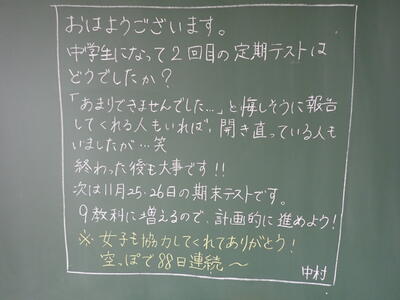 おはようございます。
中学生になって2回目の定期テストは
どうでしたか？
「あまりできませんでした…」と悔しそうに報告
してくれる人もいれば、開き直っている人も
いましたが…笑
終わった後も大事です!!
次は11月25・26日の期末テストです。
9教科に増えるので、計画的に進めよう!
※女子も協力してくれてありがとう!
空っぽで88日連続～
中村